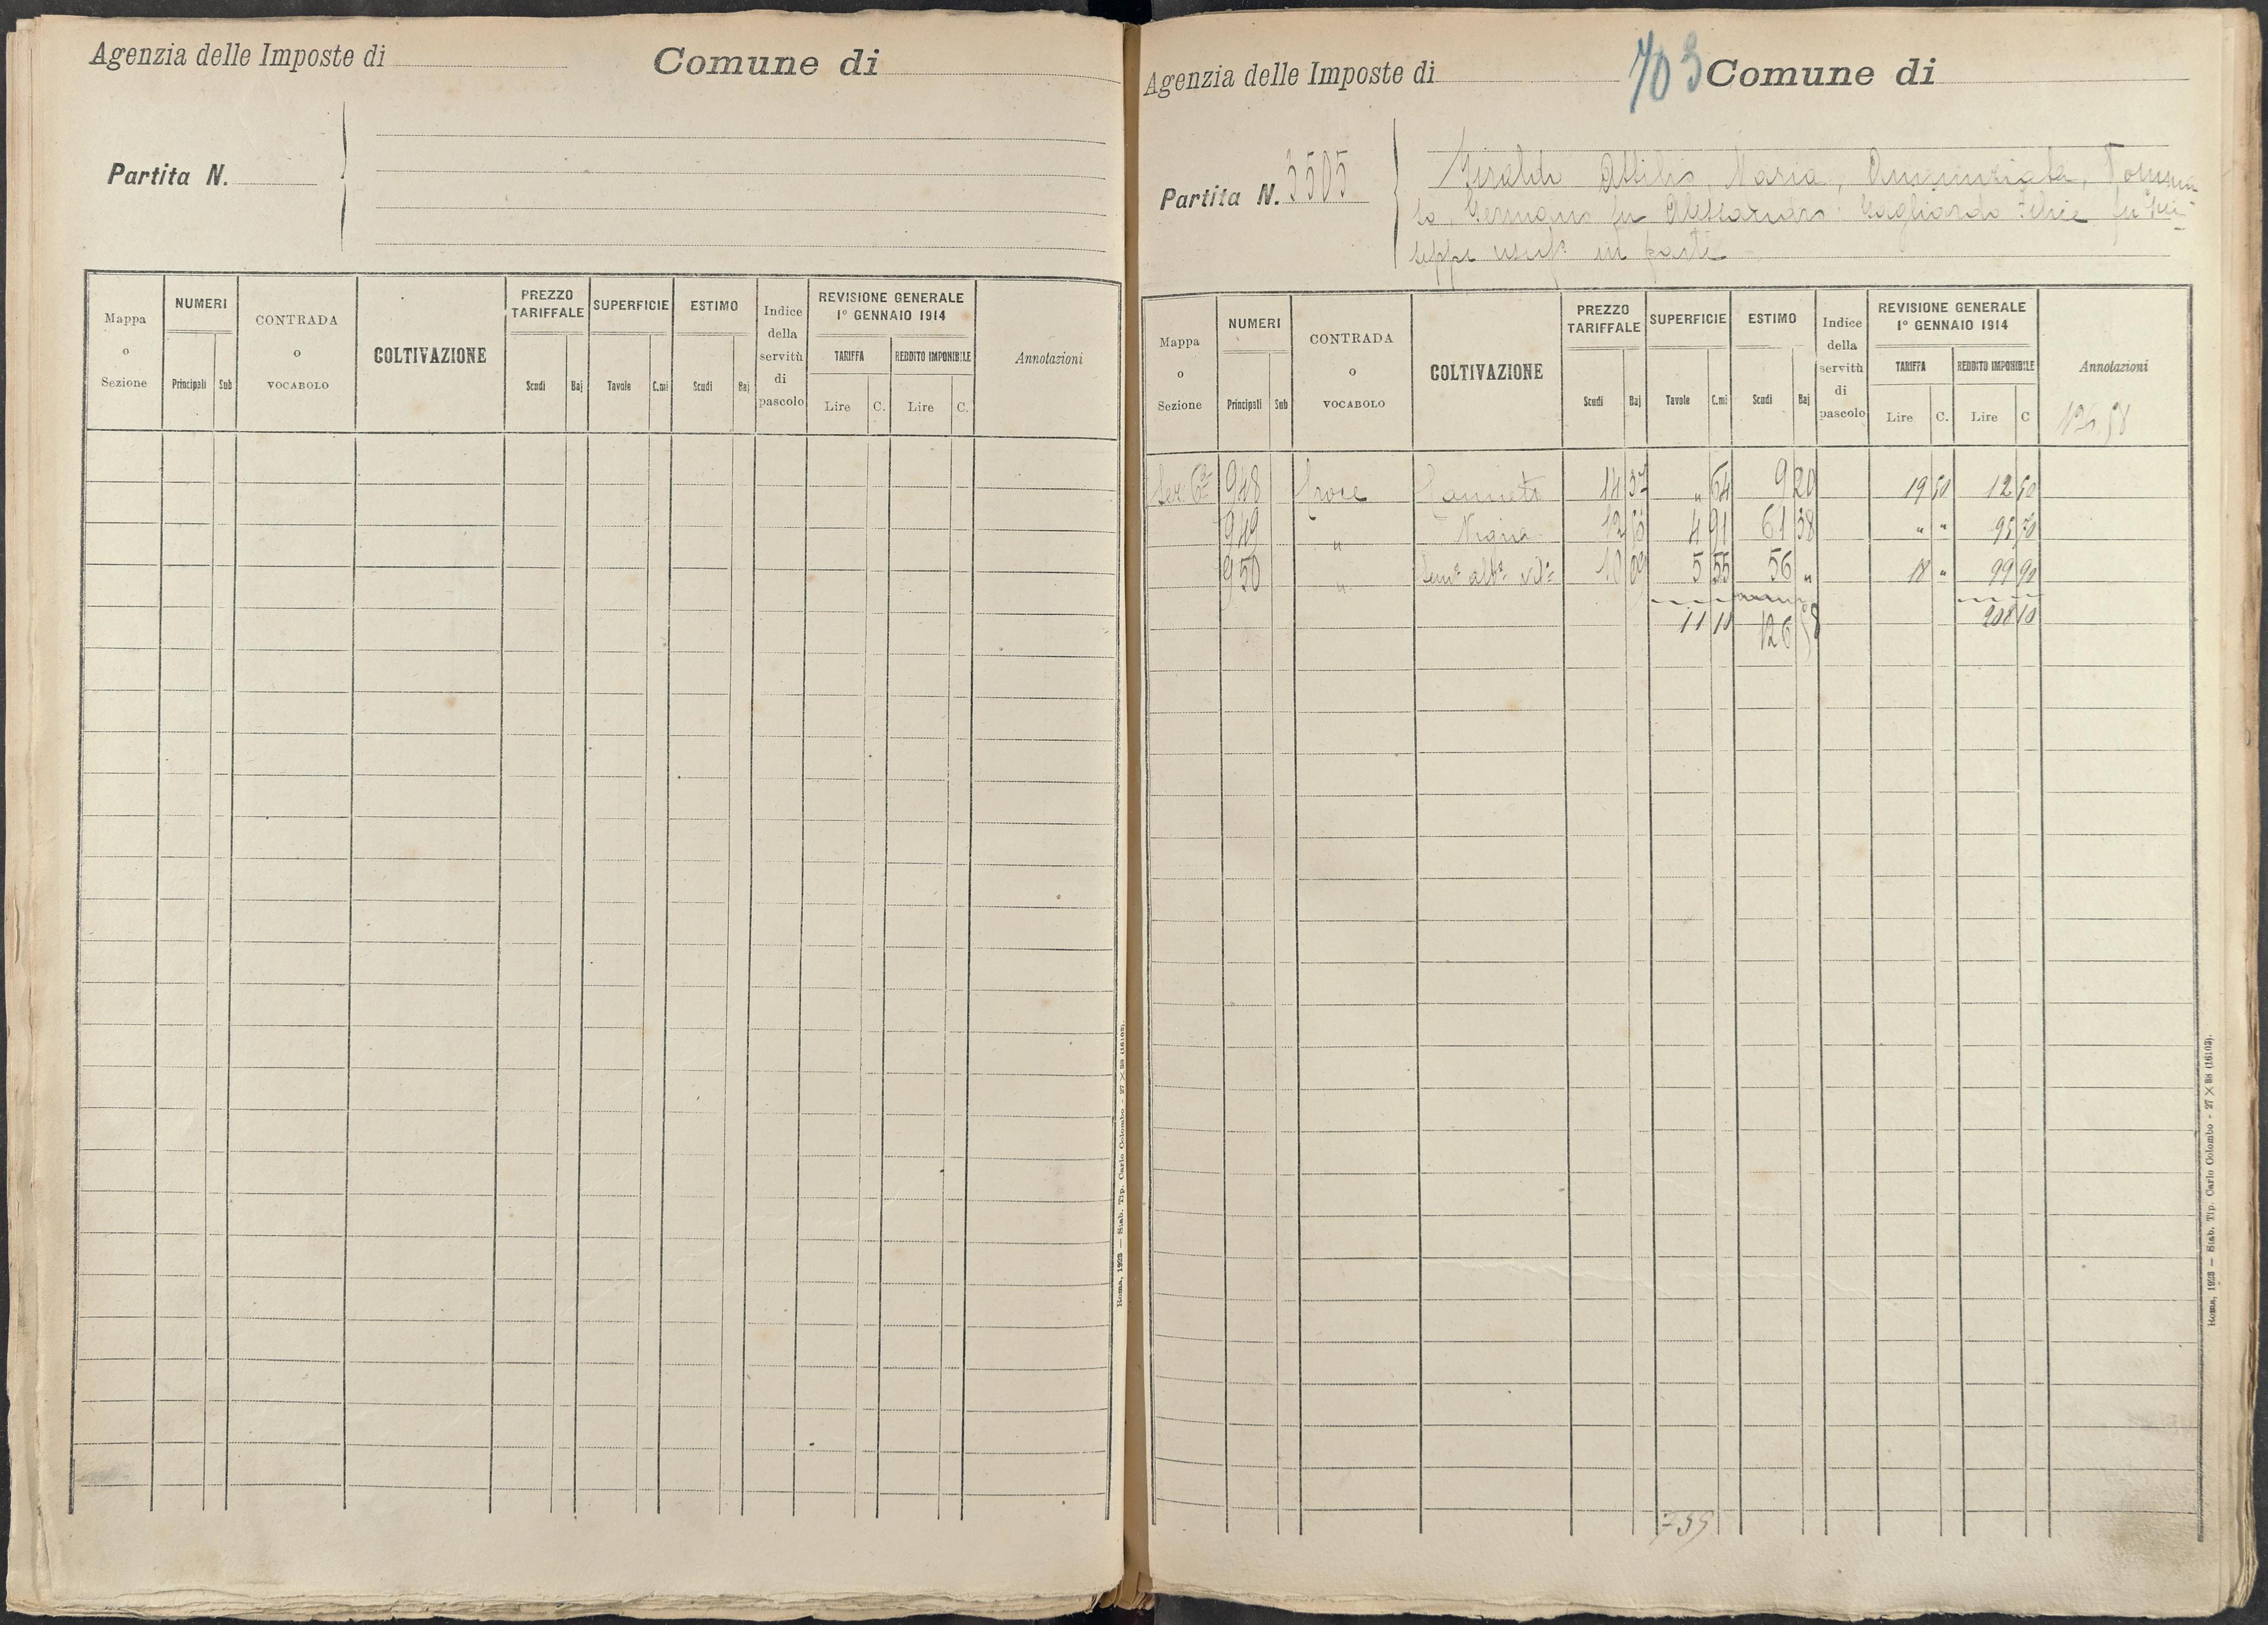 Agenzia delle Imposte di
Comune di
Partita N.
Mappa o Sezione
NUMERI
Principali Sub
CONTRADA o VOCABOLO
COLTIVAZIONE
PREZZO TARIFFALE
Scudi Baj
SUPERFICIE
Tavole C.mi
ESTIMO
Scudi Baj
Indice della servitù di pascolo
REVISIONE GENERALE
1° GENNAIO 1914
TARIFFA REDDITO IMPONIBILE
Lire C. Lire C.
Annotazioni
Roma, 1923 — Stab. Tip. Carlo Colombo - 27 × 38 (16102).
703
Agenzia delle Imposte di
Comune di
Partita N. 3505
Attilio, Maria, Annunziata, Tomma
so, Germano fu Alessandro Gagliardo fu Giu-
seppe usuf. in parte
Mappa o Sezione
NUMERI
Principali Sub
CONTRADA o VOCABOLO
COLTIVAZIONE
PREZZO TARIFFALE
Scudi Baj
SUPERFICIE
Tavole C.mi
ESTIMO
Scudi Baj
Indice della servitù di pascolo
REVISIONE GENERALE
1° GENNAIO 1914
TARIFFA REDDITO IMPONIBILE
Lire C. Lire C
Annotazioni
Sez. 6ª 948 Croce Canneto 14 37 " 64 9 20 19 50 12 50
949 " Vigna 12 50 4 91 61 38 " " 95 70
950 " Semº albº vitº 10 09 5 55 56 " 18 " 99 90
11 10 126 58 208 10
Roma, 1923 — Stab. Tip. Carlo Colombo - 27 × 38 (16102).